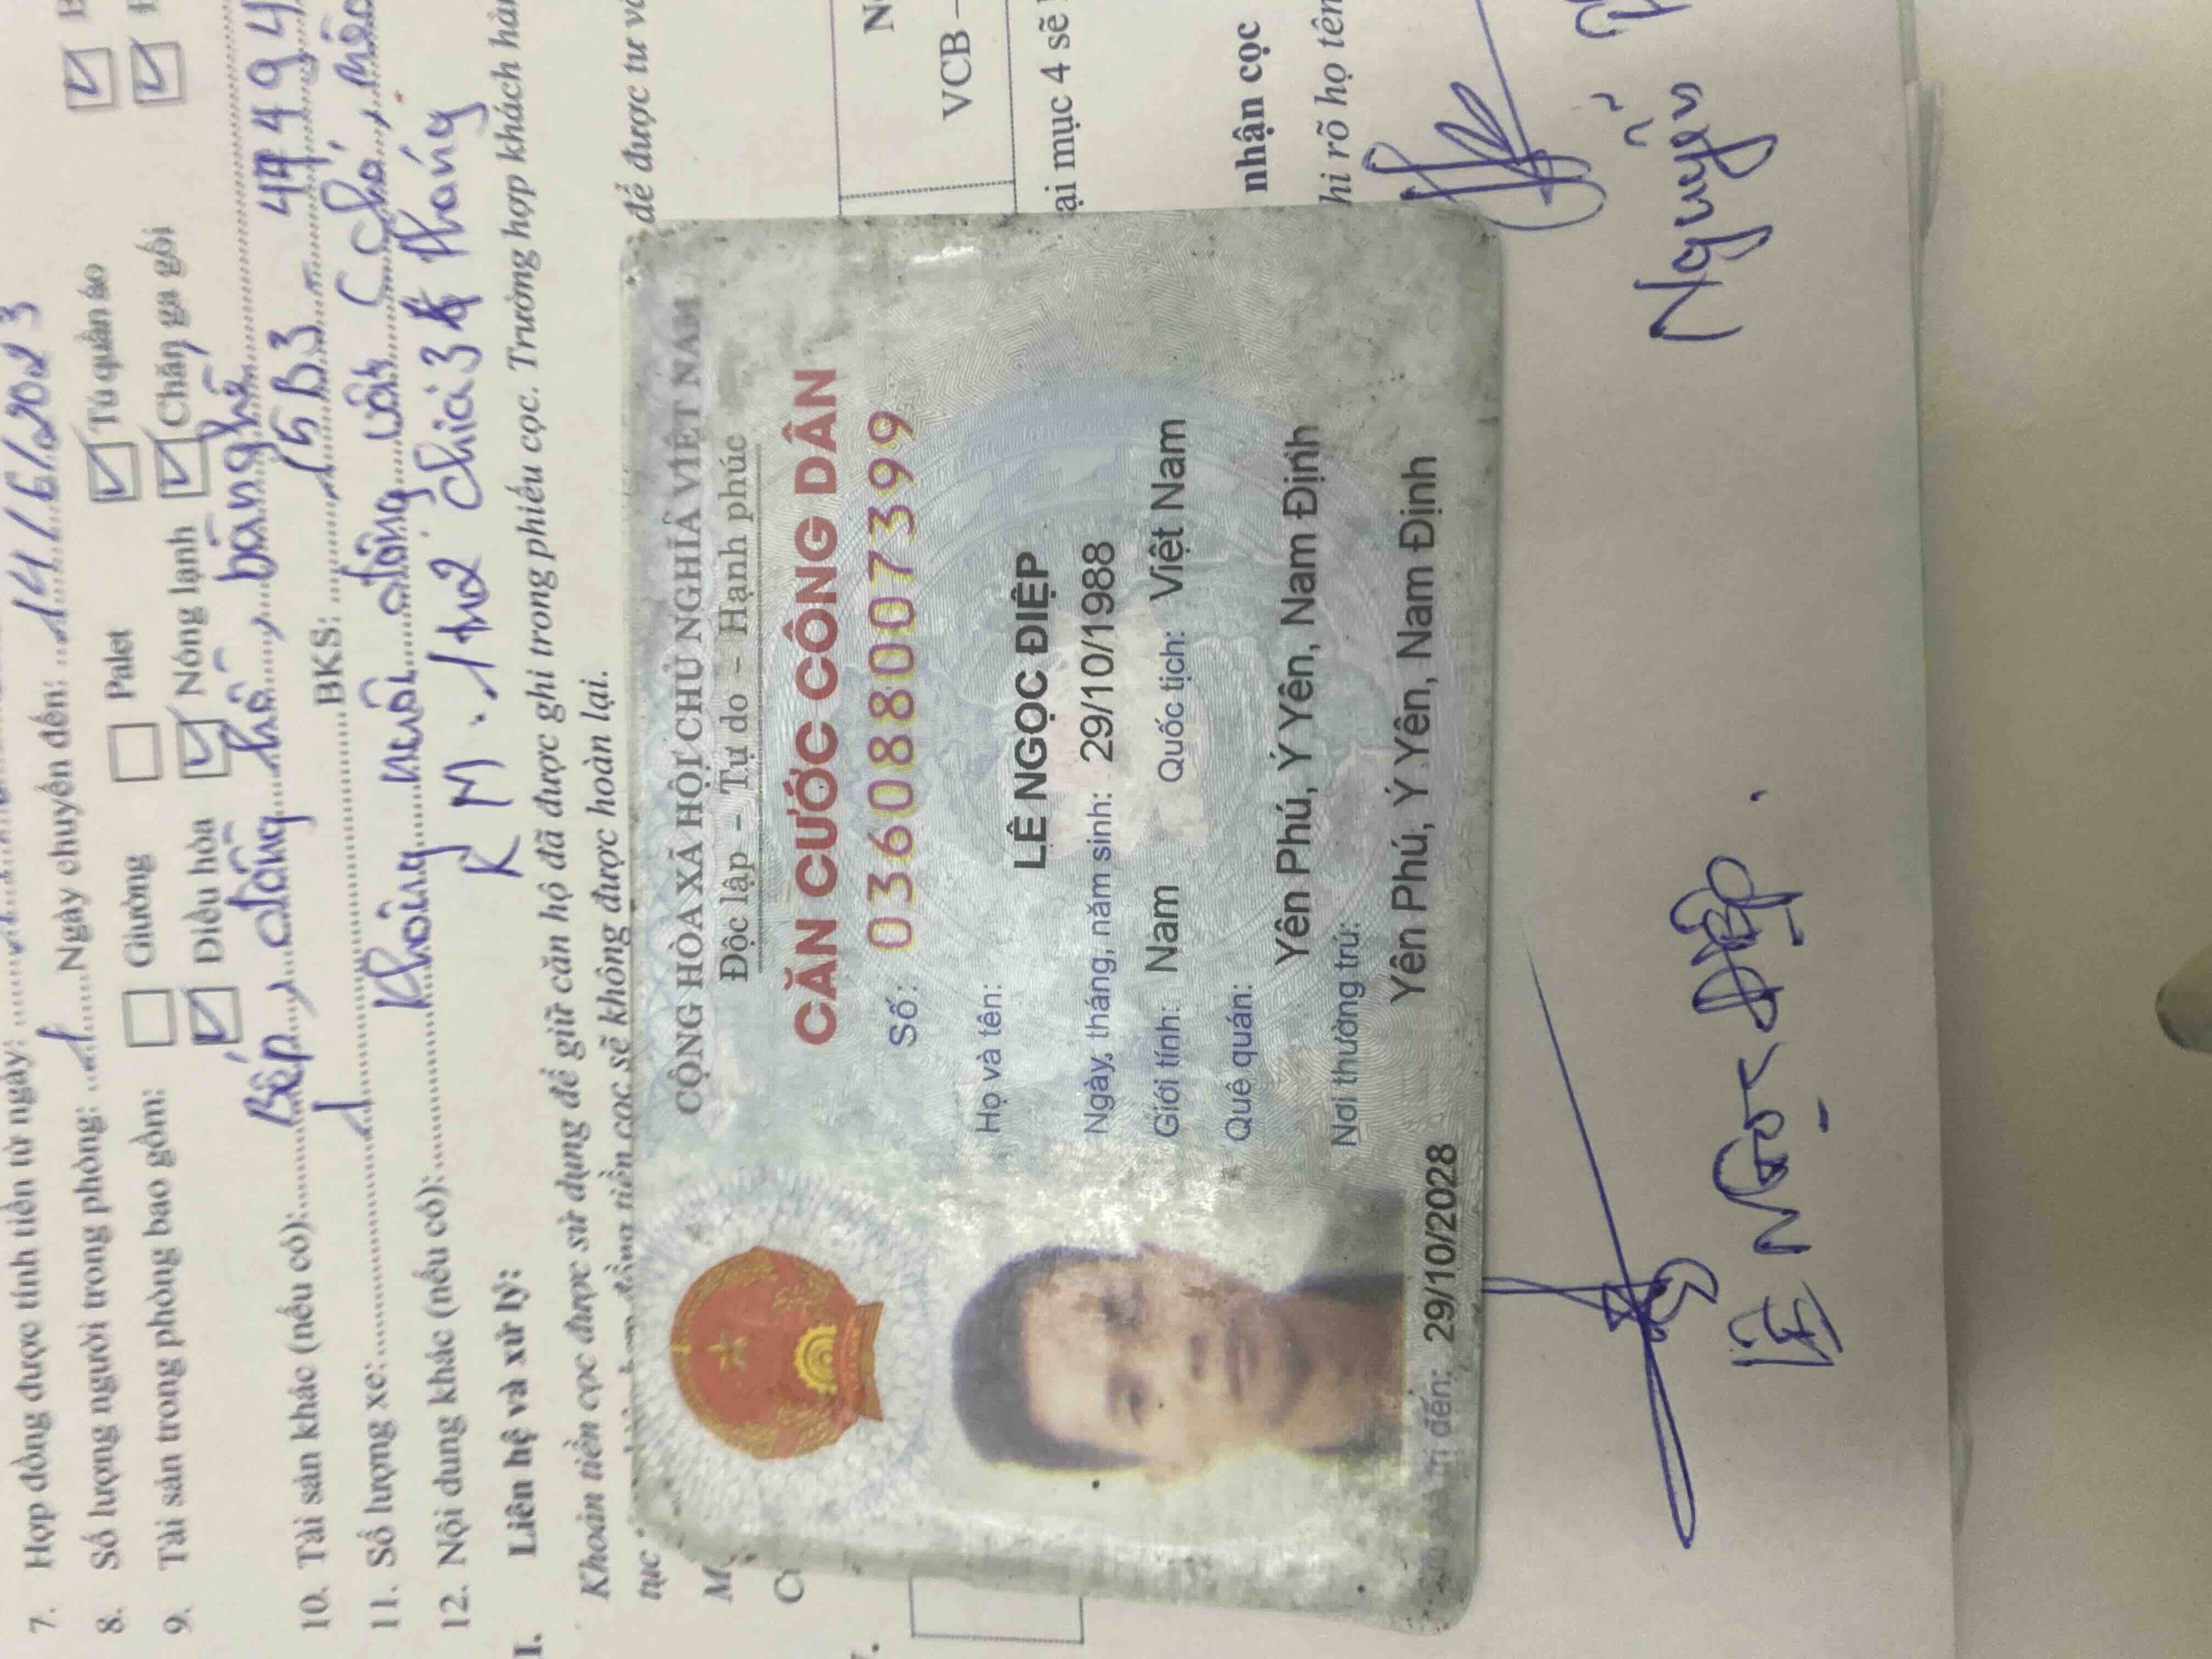 7. Hợp đồng được tính tiền từ ngày:
8. Số lượng người trong phòng: 1 Ngày chuyển đến: 14/6/2023
9. Tài sản trong phòng bao gồm: Giường Palet Tủ quần áo
Điều hòa Nóng lạnh Chăn ga gối
10. Tài sản khác (nếu có): Bếp, bàn ghế
11. Số lượng xe: 1 BKS: 15B3
12. Nội dung khác (nếu có): Không nuôi động vật (chó, mèo
KM: 3 tháng
I. Liên hệ và xử lý:
Khoản tiền cọc được sử dụng để giữ căn hộ đã được ghi trong phiếu cọc. Trường hợp khách hàn
tiền cọc sẽ không được hoàn lại.
tục để được tư vấ
VCB –
ại mục 4 sẽ
nhận cọc
hi rõ họ tên
CỘNG HÒA XÃ HỘI CHỦ NGHĨA VIỆT NAM
Độc lập – Tự do – Hạnh phúc
CĂN CƯỚC CÔNG DÂN
Số: 036088007399
Họ và tên:
LÊ NGỌC ĐIỆP
Ngày, tháng, năm sinh: 29/10/1988
Giới tính: Nam Quốc tịch: Việt Nam
Quê quán:
Yên Phú, Ý Yên, Nam Định
Nơi thường trú:
Yên Phú, Ý Yên, Nam Định
trị đến: 29/10/2028
Nguyễn
Lê Ngọc Điệp.